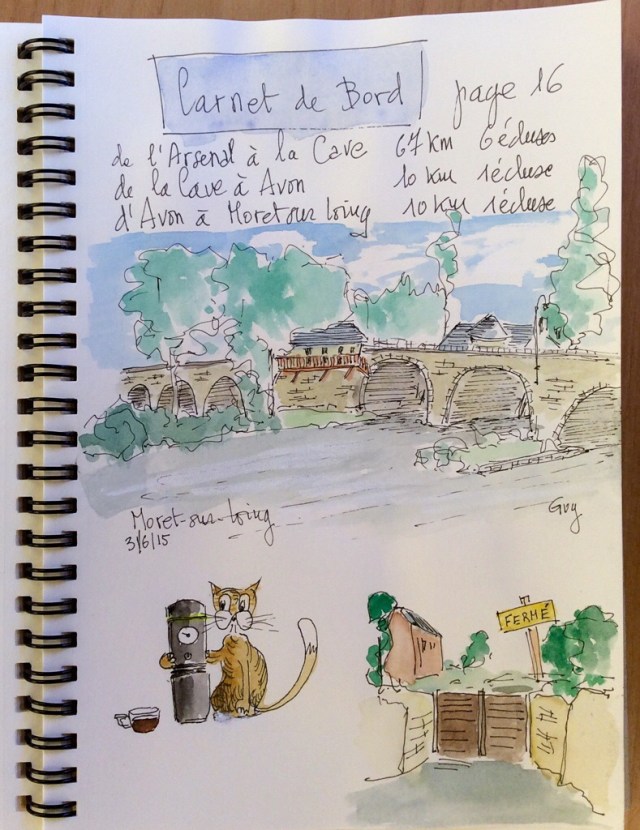 Carnet de Bord page 16
de l'Arsenal à la Cave 67 km 6 écluses
de la Cave à Avon 10 km 1 écluse
d'Avon à Moret sur Loing 10 km 1 écluse
Moret-sur-Loing
3/6/15
Guy
FERMÉ